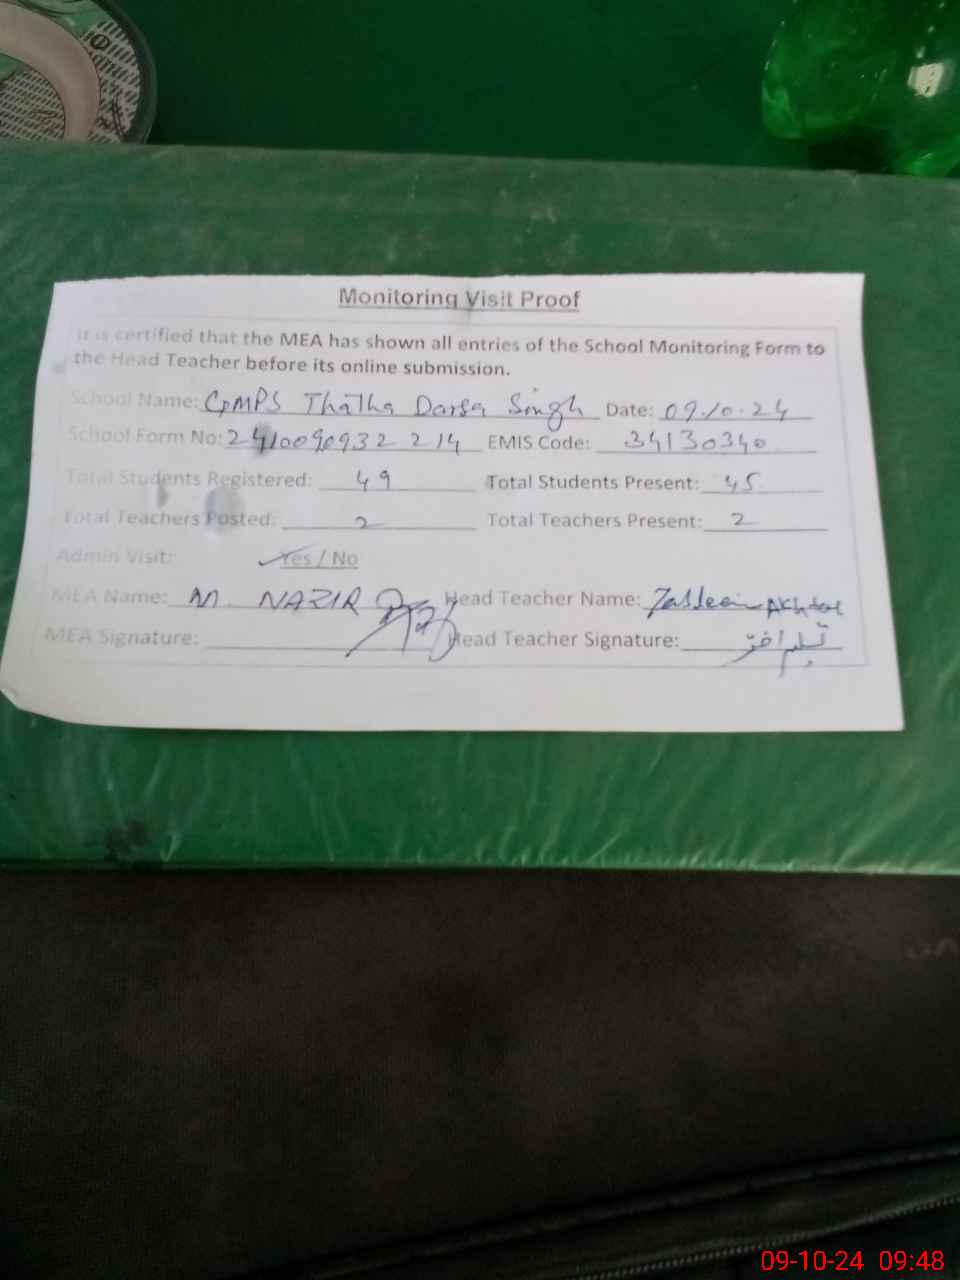 Monitoring Visit Proof
It is certified that the MEA has shown all entries of the School Monitoring Form to
the Head Teacher before its online submission.
School Name: GMPS Thatha Darga Singh Date: 09.10.24
School Form No: 2410090932214 EMIS Code: 34130340
Total Students Registered: 49 Total Students Present: 45
Total Teachers Posted: 2 Total Teachers Present: 2
Admin Visit: Yes / No
MEA Name: M. NAZIR Head Teacher Name: Tasleem Akhtar
MEA Signature: Head Teacher Signature: تسلیم اختر
09-10-24 09:48